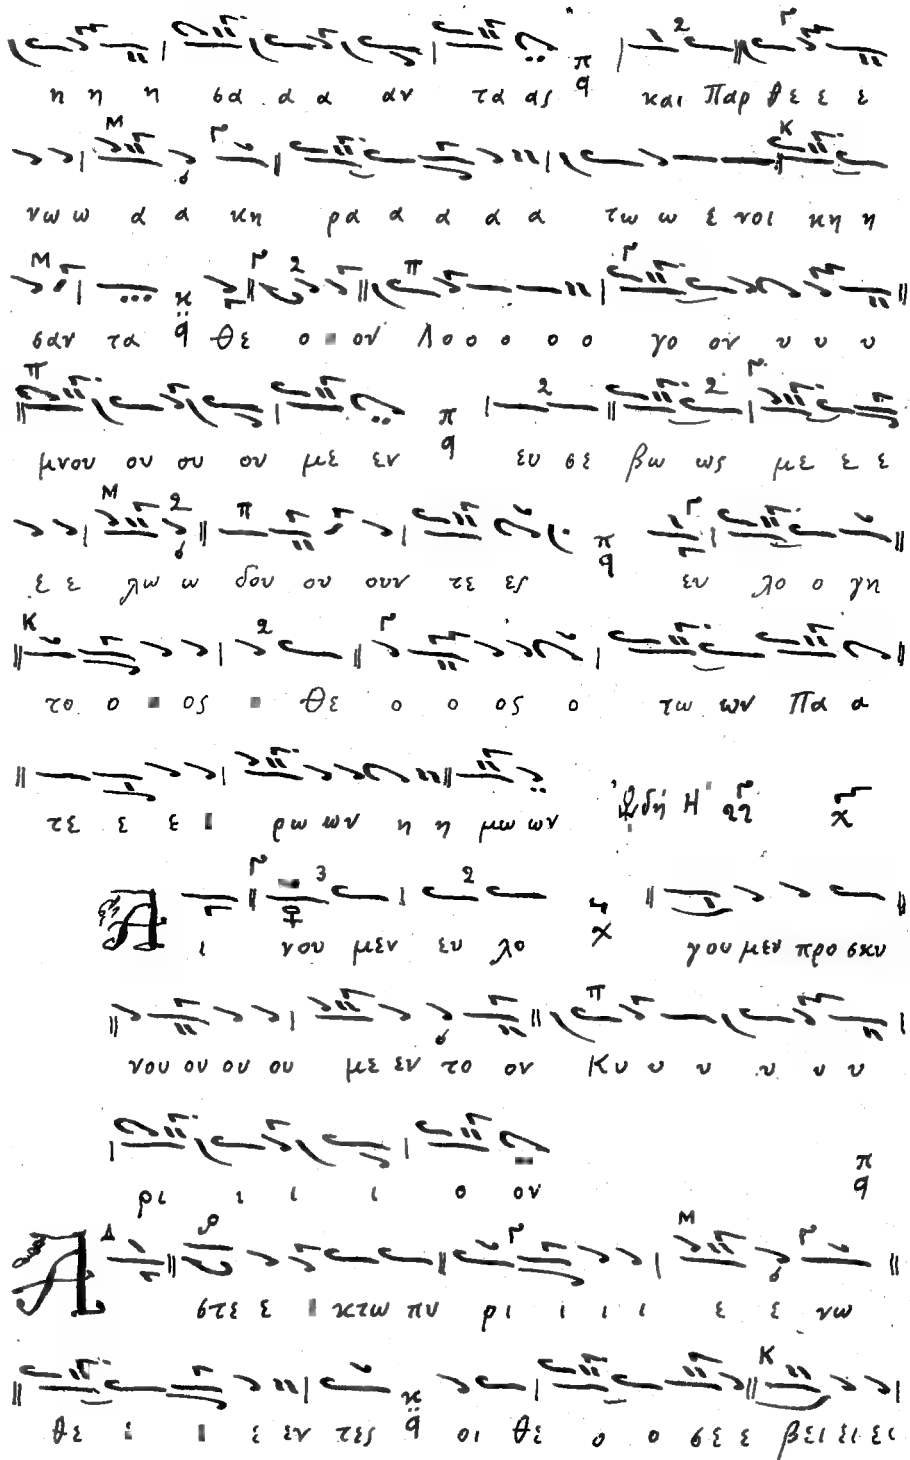 η η η σα α α αν τα ας π q και Παρ θε ε ε
νω ω α α κη ρα α α α α τω ω ε νοι κη η
σαν τα q θε ο ον Λο ο ο ο ο ο γο ον υ υ υ
μνου ου ου ου με εν π q ευ σε βω ως με ε ε
ε ε λω ω δου ου ουν τε ες π q ευ λο ο γη
το ο ος θε ο ο ος ο τω ων Πα α
τε ε ε ρω ων η η μω ων Ὠδή Η
Α ι νου μεν ευ λο γου μεν προ σκυ
νου ου ου ου με εν το ον Κυ υ υ υ υ υ
ρι ι ι ι ο ον π q
Α στε ε κτω πυ ρι ι ι ι ε ε νω
θε ε ε εν τες q οι θε ο ο σε ε βει ει ει